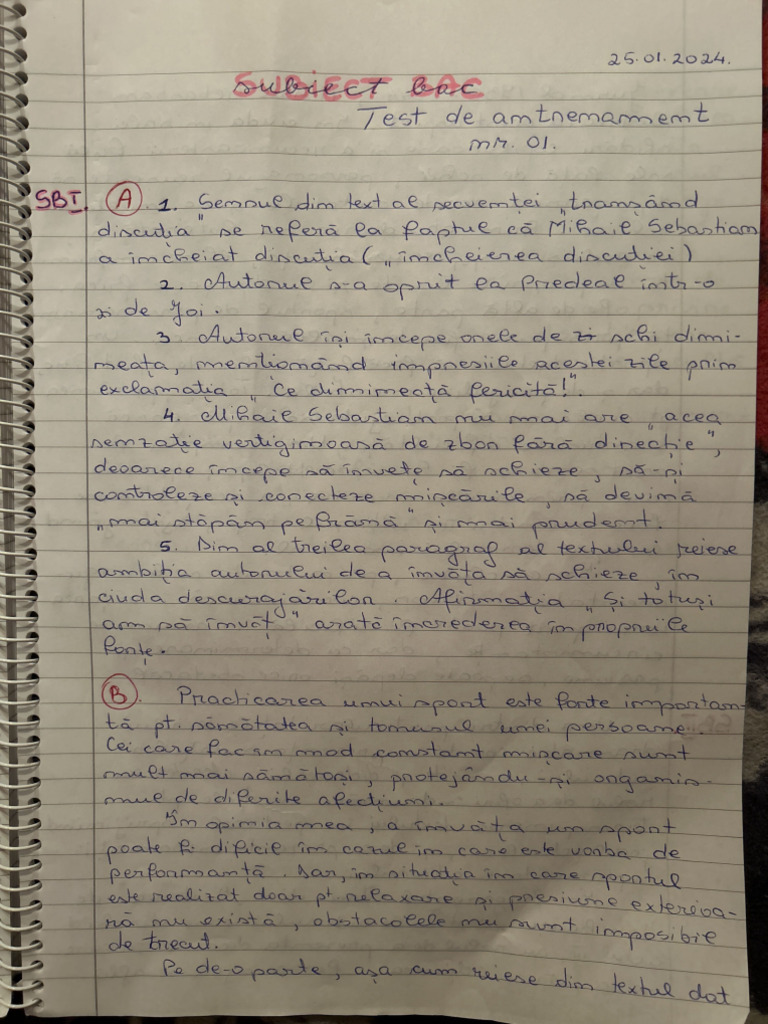 25.01.2024.
Subiect bac
Test de antrenament
nr. 01.
SBI. A 1. Sensul din text al secvenței „tranșând
discuția" se referă la faptul că Mihail Sebastian
a încheiat discuția („încheierea discuției)
2. Autorul s-a oprit la Predeal într-o
zi de Joi.
3 Autorul își începe orele de zi schi dimi-
neața, menționând impresiile acestei zile prin
exclamația „Ce dimineață fericită!".
4. Mihail Sebastian nu mai are „acea
senzație vertiginoasă de zbor fără direcție",
deoarece începe să învețe să schieze, să-și
controleze și conecteze mișcările, să devină
„mai stăpân pe frână" și mai prudent.
5. Din al treilea paragraf al textului reiese
ambiția autorului de a învăța să schieze, în
ciuda descurajărilor. Afirmația „Și totuși
am să învăț" arată încrederea în propriile
forțe.
B Practicarea unui sport este foarte importan-
tă pt. sănătatea și tonusul unei persoane.
Cei care fac în mod constant mișcare sunt
mult mai sănătoși, protejându-și organis-
mul de diferite afecțiuni.
În opinia mea, a învăța un sport
poate fi dificil în cazul în care este vorba de
performanță. Dar, în situația în care sportul
este realizat doar pt relaxare și presiune exterioa-
ră nu există, obstacolele nu sunt imposibil
de trecut.
Pe de-o parte, așa cum reiese din textul dat